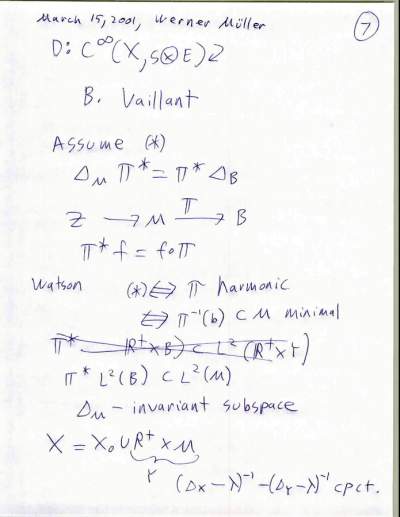 March 15, 2001, Werner Müller
⑦
D: C^∞(X, S⊗E)⟲
B. Vaillant
Assume (*)
Δ_M π* = π* Δ_B
Z → M —π→ B
π* f = f∘π
Watson (*) ⇔ π harmonic
⇔ π⁻¹(b) ⊂ M minimal
π* L²(B) ⊂ L²(M)
Δ_M – invariant subspace
X = X₀ ∪ ℝ⁺ × M
Y
(Δ_X − λ)⁻¹ − (Δ_Y − λ)⁻¹ cpct.